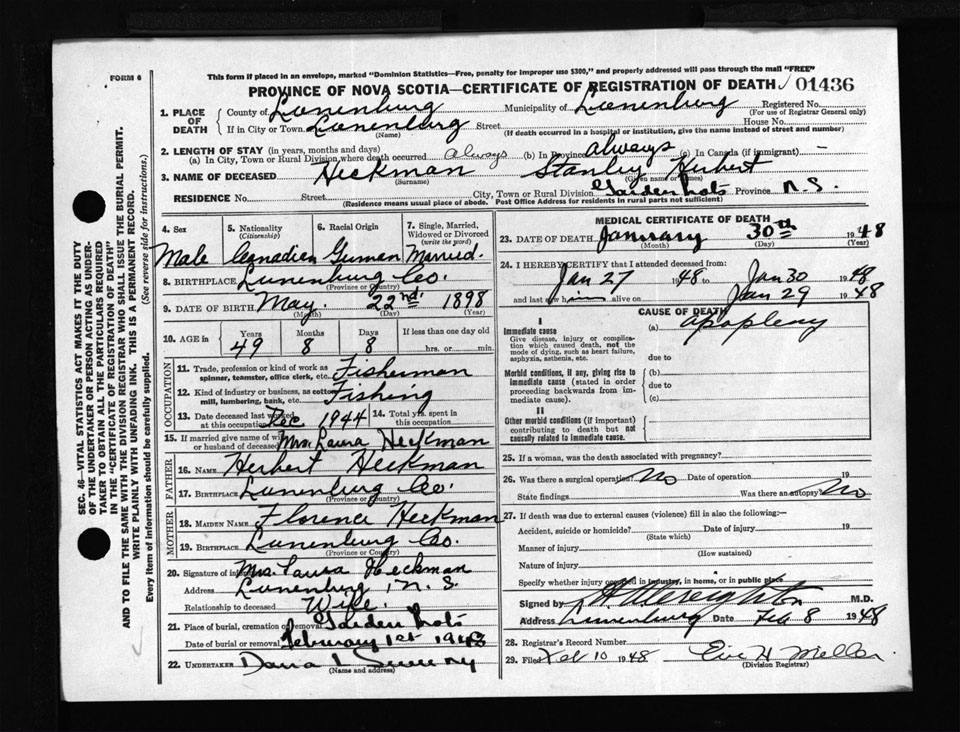 FORM 6
This form if placed in an envelope, marked "Dominion Statistics—Free, penalty for improper use $300," and properly addressed will pass through the mail "FREE"
PROVINCE OF NOVA SCOTIA—CERTIFICATE OF REGISTRATION OF DEATH 01436
SEC. 46—VITAL STATISTICS ACT MAKES IT THE DUTY
OF THE UNDERTAKER OR PERSON ACTING AS UNDER-
TAKER TO OBTAIN ALL THE PARTICULARS REQUIRED
IN THE "CERTIFICATE OF REGISTRATION OF DEATH"
AND TO FILE THE SAME WITH THE DIVISION REGISTRAR WHO SHALL ISSUE THE BURIAL PERMIT.
WRITE PLAINLY WITH UNFADING INK. THIS IS A PERMANENT RECORD.
Every item of information should be carefully supplied. (See reverse side for instructions.)
1. PLACE OF DEATH
County of Lunenburg Municipality of Lunenburg Registered No.
(For use of Registrar General only)
If in City or Town Lunenburg Street House No.
(Name) (If death occurred in a hospital or institution, give the name instead of street and number)
2. LENGTH OF STAY (in years, months and days)
(a) In City, Town or Rural Division where death occurred always (b) In Province always (c) In Canada (if immigrant) —
3. NAME OF DECEASED Heckman Stanley Herbert
(Surname) (Given name or names)
RESIDENCE No. Street City, Town or Rural Division Garden Lots Province N.S.
(Residence means usual place of abode. Post Office Address for residents in rural parts not sufficient)
4. Sex 5. Nationality (Citizenship) 6. Racial Origin 7. Single, Married, Widowed or Divorced (write the word)
Male Canadian German Married.
8. BIRTHPLACE Lunenburg Co.
(Province or Country)
9. DATE OF BIRTH May. 22nd. 1898
(Month) (Day) (Year)
10. AGE in Years Months Days If less than one day old
49 8 8 hrs. or min.
OCCUPATION
11. Trade, profession or kind of work as spinner, teamster, office clerk, etc. Fisherman
12. Kind of industry or business, as cotton mill, lumbering, bank, etc. Fishing
13. Date deceased last worked at this occupation Dec 1944 14. Total yrs. spent in this occupation
15. If married give name of wife or husband of deceased Mrs. Laura Heckman
FATHER
16. NAME Herbert Heckman
17. BIRTHPLACE Lunenburg Co.
(Province or Country)
MOTHER
18. MAIDEN NAME Florence Heckman
19. BIRTHPLACE Lunenburg Co.
(Province or Country)
20. Signature of informant Mrs. Laura Heckman
Address Lunenburg, N.S.
Relationship to deceased Wife.
21. Place of burial, cremation or removal Garden Lots
Date of burial or removal February 1st 1948
22. UNDERTAKER
(Name and address)
MEDICAL CERTIFICATE OF DEATH
23. DATE OF DEATH January 30th 1948
(Month) (Day) (Year)
24. I HEREBY CERTIFY that I attended deceased from:
Jan 27 1948 to Jan 30 1948
and last saw him alive on Jan 29 1948
CAUSE OF DEATH
I
Immediate cause (a) apoplexy
Give disease, injury or complica-
tion which caused death, not the
mode of dying, such as heart failure,
asphyxia, asthenia, etc. due to
Morbid conditions, if any, giving rise to (b)
immediate cause (stated in order due to
proceeding backwards from im-
mediate cause). (c)
II
Other morbid conditions (if important)
contributing to death but not
causally related to immediate cause.
25. If a woman, was the death associated with pregnancy?
26. Was there a surgical operation? No Date of operation 19
State findings Was there an autopsy? No
27. If death was due to external causes (violence) fill in also the following:—
Accident, suicide or homicide? Date of injury 19
(State which)
Manner of injury
(How sustained)
Nature of injury
Specify whether injury occurred in industry, in home, or in public place
Signed by M.D.
Address Lunenburg Date Feb 8 1948
28. Registrar's Record Number
29. Filed Feb 10 1948
(Division Registrar)